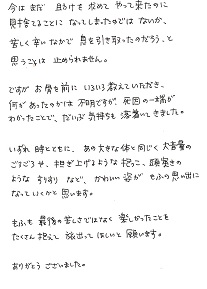 今はまだ 助けを求めて やって来たのに
見捨てることに なってしまったのでは ないか、
苦しく辛いなかで 息を引き取ったのだろう と
思うことは 止められません。
ですが お骨を前に いろいろ教えていただき、
何があったのかは 不明ですが、死因の一端が
わかったことで、だいぶ気持ちも 落着いてきました。
いずれ 時とともに、あの大きな体と同じく 大音量の
ごろごろや、担ぎ上げるような 抱っこ、頭突きの
ような すりすり など、かわいい姿が もふの思い出に
なっていくかと 思います。
もふも 最後の苦しさではなく 楽しかったことを
たくさん抱えて 旅出って ほしいと 願います。
ありがとう ございました。